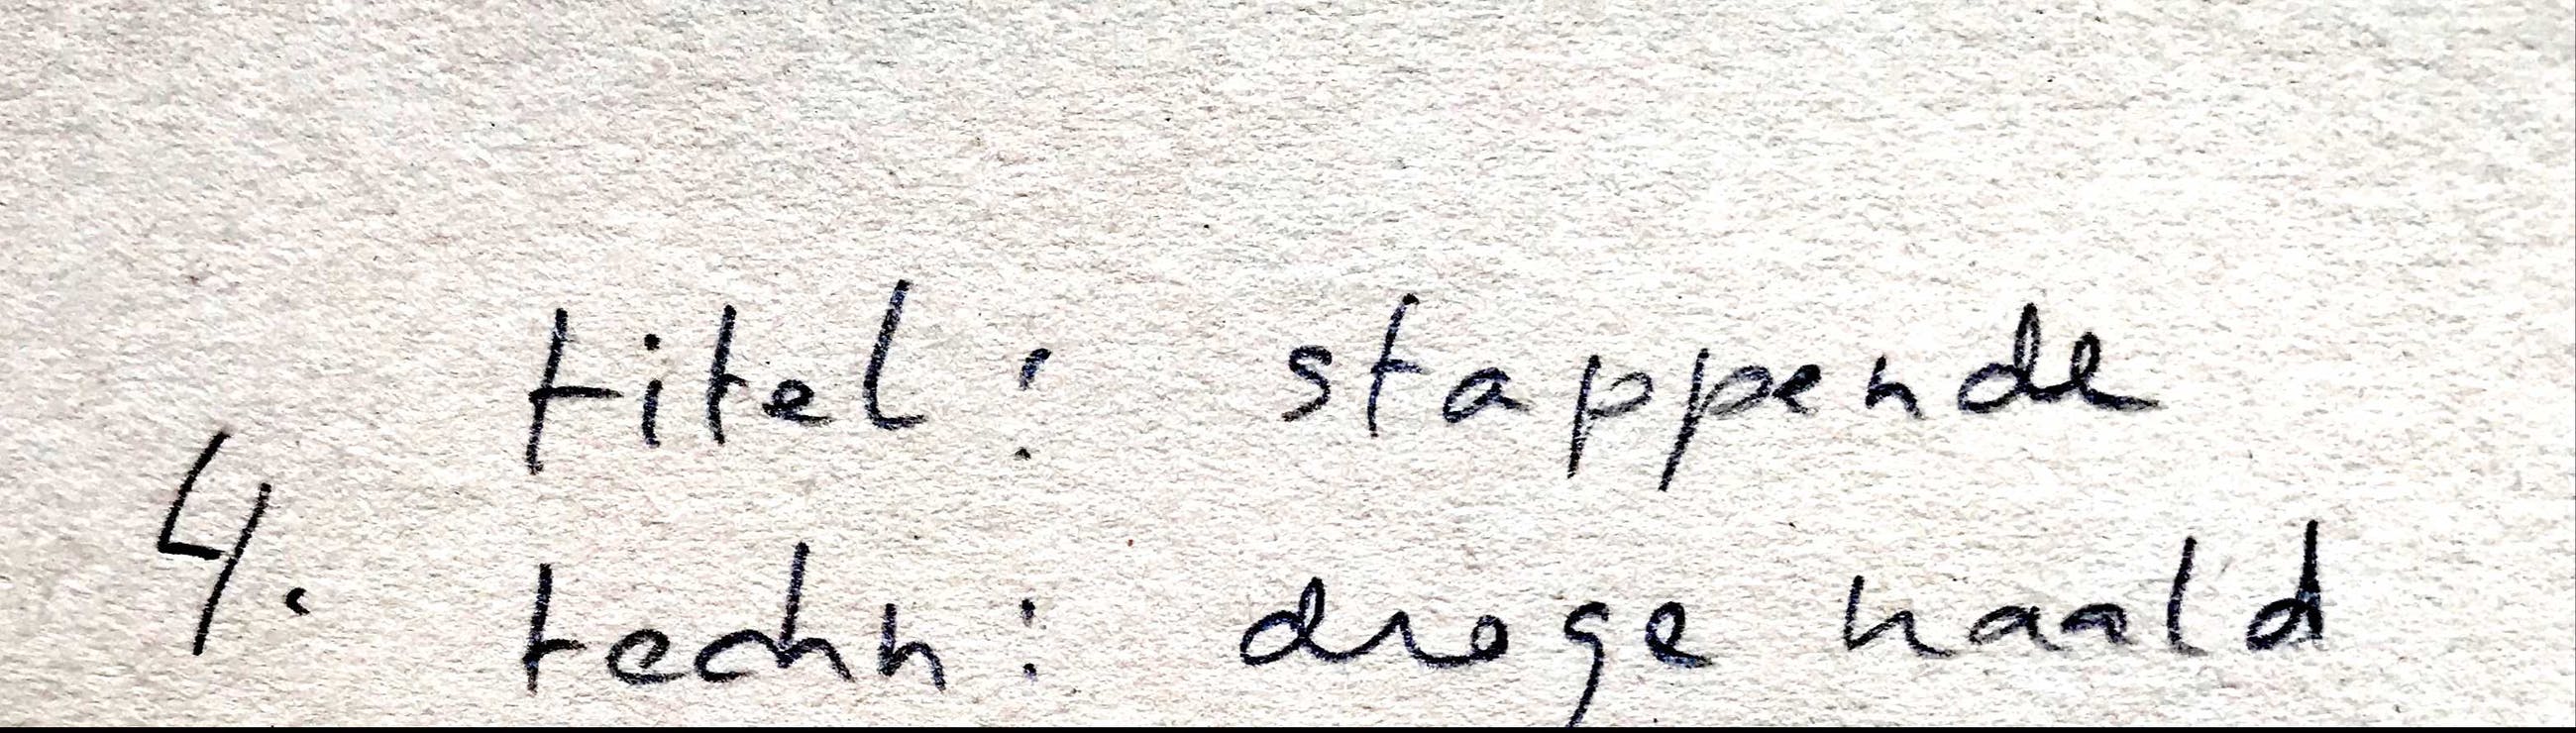 titel: stappende
4.
techn: droge naald